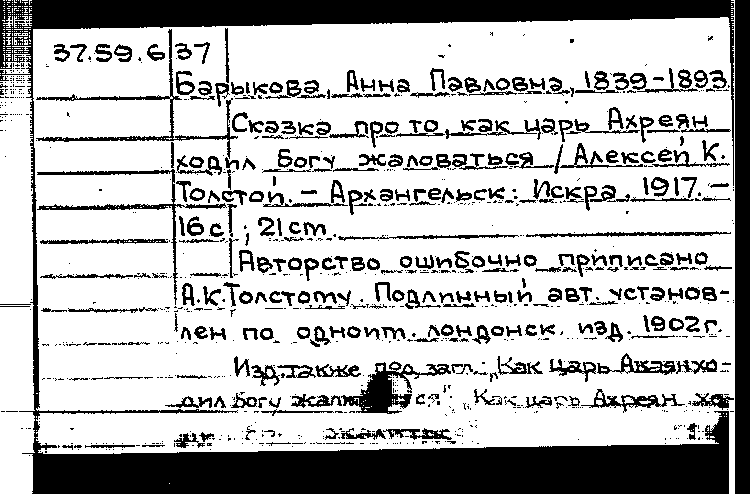 37.59.6 37
Барыкова, Анна Павловна, 1839-1893
Сказка про то, как царь Ахреян
ходил Богу жаловаться / Алексей К.
Толстой. – Архангельск: Искра, 1917. –
16 с ; 21 cm.
Авторство ошибочно приписано
А.К.Толстому. Подлинный авт. установ-
лен по одноим. лондонск. изд. 1902 г.
Изд. также под загл.: „Как царь Ахреян хо-
дил Богу "; „Как царь Ахреян хо-